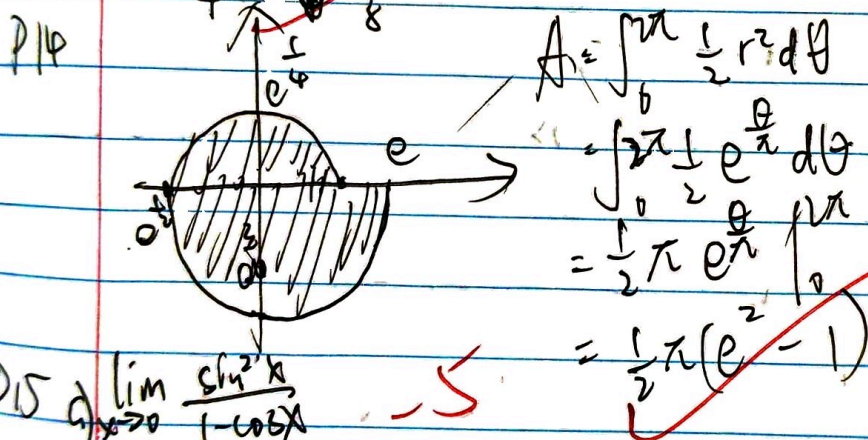 8
P14
e^{1/4}
e
e^{1/2}
e^{3/4}
A = \int_0^{2π} \frac{1}{2} r^2 dθ
= \int_0^{2π} \frac{1}{2} e^{\frac{θ}{π}} dθ
= \frac{1}{2} π e^{\frac{θ}{π}} |_0^{2π}
= \frac{1}{2} π (e^2 - 1)
P15 a) \lim_{x→0} \frac{sin^2 x}{1-cosx}
-5